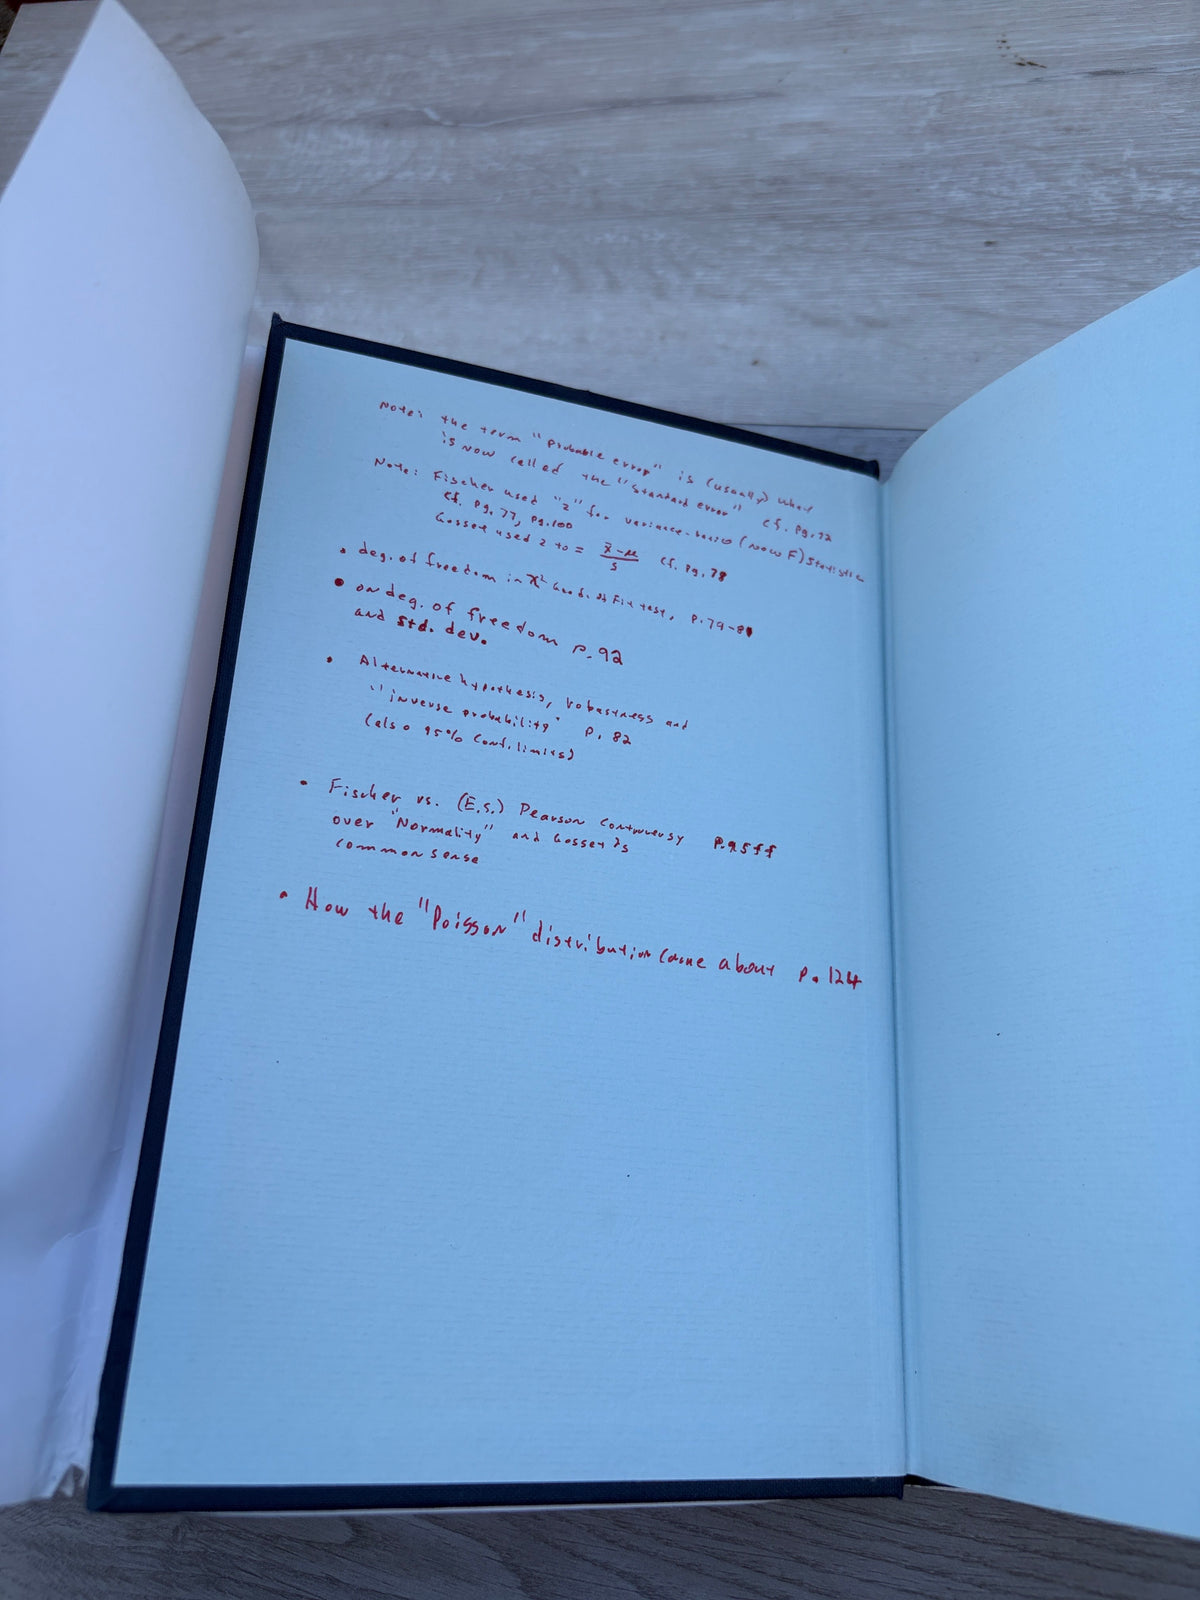 Note: the term "probable error" is (usually) what
is now called the "standard error" cf. pg. 72
Note: Fischer used "z" for variance-based (now F) statistic
cf. pg. 77, pg. 100
Gosset used z to = x̄-μ/s cf. pg. 78
• deg. of freedom in χ² Good. of Fit test, p. 79-81
• on deg. of freedom p. 92
and std. dev.
• Alternative hypothesis, robustness and
"inverse probability" p. 82
(also 95% conf. limits)
• Fischer vs. (E.S.) Pearson controversy p. 95ff
over "Normality" and Gosset's
common sense
• How the "Poisson" distribution came about p. 124